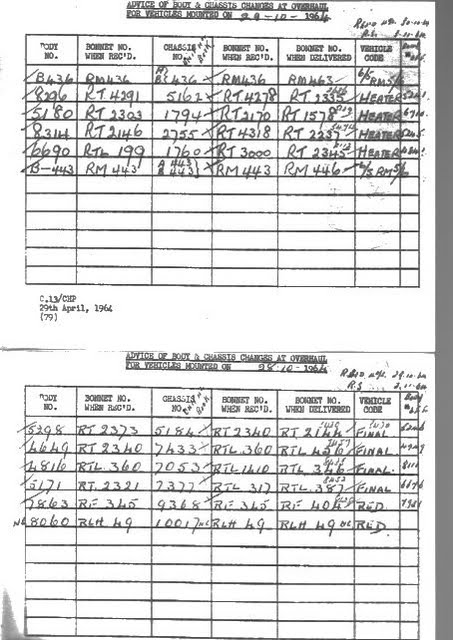 ADVICE OF BODY & CHASSIS CHANGES AT OVERHAUL
FOR VEHICLES MOUNTED ON 29-10-1964
BODY NO. BONNET NO. WHEN REC'D. CHASSIS NO. BONNET NO. WHEN REC'D. BONNET NO. WHEN DELIVERED VEHICLE CODE
B436 RM436 B436 RM436 RM463 6/5 RM5/6
8296 RT 4291 5162 RT 4278 RT 2335 HEATER
5180 RT 2303 1794 RT 2170 RT 1578 HEATER
8314 RT 2146 2755 RT 4318 RT 2237 HEATER
6690 RTL 199 1760 RT 3000 RT 2345 HEATER
B-443 RM 443 A 443 RM 443 RM 446 6/5 RM5/6
C.13/CHP
29th April, 1964
(79)
ADVICE OF BODY & CHASSIS CHANGES AT OVERHAUL
FOR VEHICLES MOUNTED ON 28-10-1964
R.S. 2.11.64
BODY NO. BONNET NO. WHEN REC'D. CHASSIS NO. BONNET NO. WHEN REC'D. BONNET NO. WHEN DELIVERED VEHICLE CODE
5298 RT 2373 5184 RT 2340 RT 2144 FINAL
4649 RT 2340 7433 RTL 360 RTL 456 FINAL
4816 RTL 360 7053 RTL 1410 RTL 346 FINAL
5171 RT 2321 7377 RTL 317 RTL 387 FINAL
7863 RF 345 9368 RF 345 RF 404 RED
8060 RLH 49 10017 RLH 49 RLH 49 RED